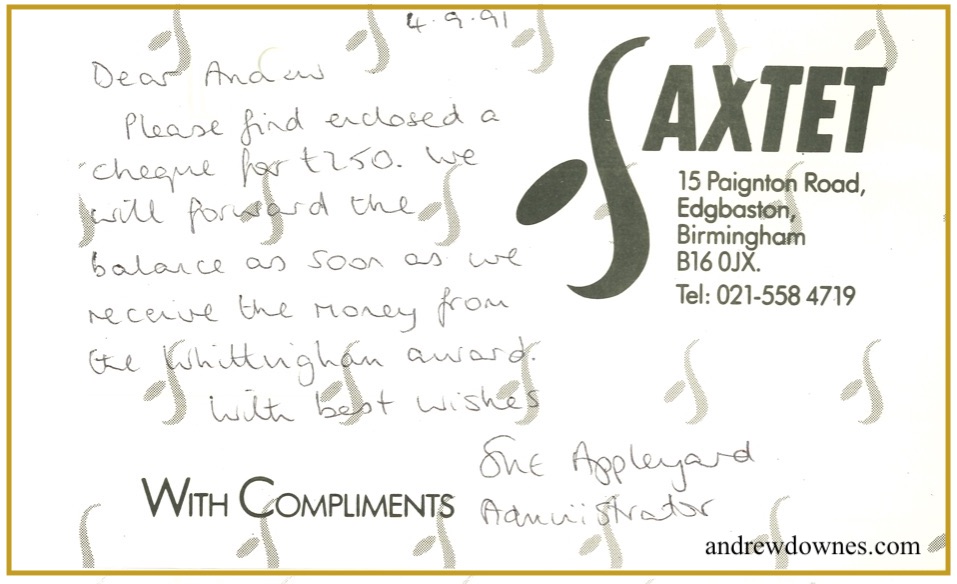 4.9.91
Dear Andrew
Please find enclosed a
cheque for £250. We
will forward the
balance as soon as we
receive the money from
the Whittingham award.
With best wishes
Sue Appleyard
Administrator
SAXTET
15 Paignton Road,
Edgbaston,
Birmingham
B16 0JX.
Tel: 021-558 4719
WITH COMPLIMENTS
andrewdownes.com